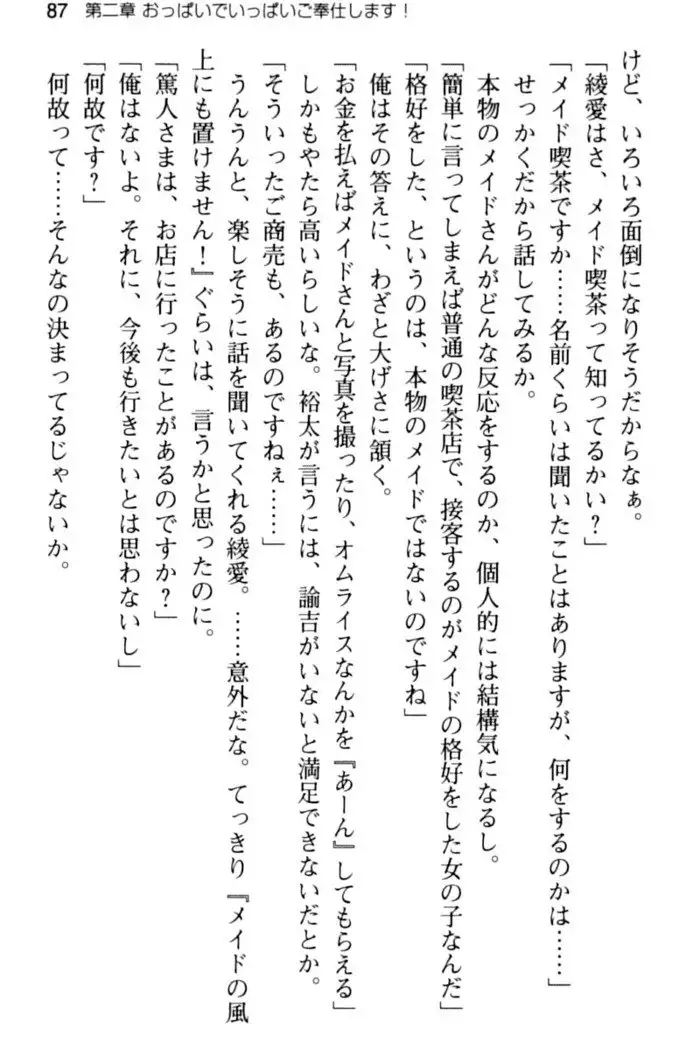 87 第二章 おっぱいでいっぱいご奉仕します！
けど、いろいろ面倒になりそうだからなぁ。
「綾愛はさ、メイド喫茶って知ってるかい？」
「メイド喫茶ですか……名前くらいは聞いたことはありますが、何をするのかは……」
せっかくだから話してみるか。
本物のメイドさんがどんな反応をするのか、個人的には結構気になるし。
「簡単に言ってしまえば普通の喫茶店で、接客するのがメイドの格好をした女の子なんだ」
「格好をした、というのは、本物のメイドではないのですね」
俺はその答えに、わざと大げさに頷く。
「お金を払えばメイドさんと写真を撮ったり、オムライスなんかを『あーん』してもらえる」
しかもやたら高いらしいな。裕太が言うには、諭吉がいないと満足できないだとか。
「そういったご商売も、あるのですねぇ……」
うんうんと、楽しそうに話を聞いてくれる綾愛。……意外だな。てっきり『メイドの風
上にも置けません！』ぐらいは、言うかと思ったのに。
「篤人さまは、お店に行ったことがあるのですか？」
「俺はないよ。それに、今後も行きたいとは思わないし」
「何故です？」
何故って……そんなの決まってるじゃないか。